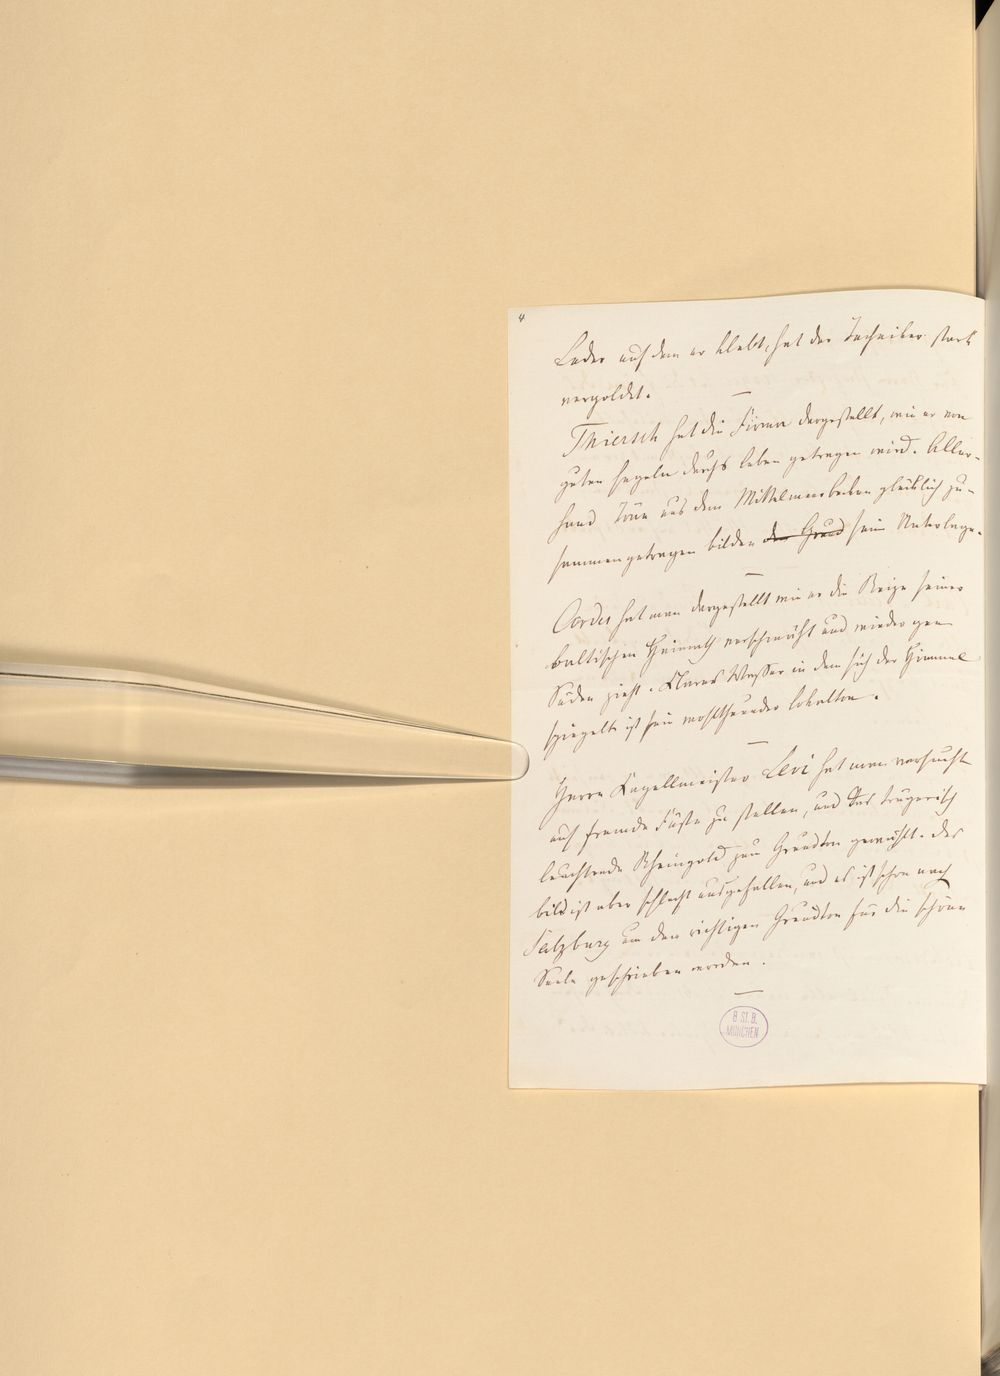 4
Leder auf dem er klebt, hat der Techniker stark
vergoldet.
Thiersch hat die Firma dargestellt, wie er von
guten Segeln durchs Leben getragen wird. Aller-
hand Töne aus dem Mittelmeerbecken glücklich zu-
sammengetragen bilden den Grund seine Unterlage.
Cordes hat man dargestellt wie er die Reize seiner
baltischen Heimath verschmäht und wieder gen
Süden zieht. Klares Wasser in dem sich der Himmel
spiegelt ist sein wohlthuender Lokalton.
Herrn Kapellmeister Levi hat man versucht
auf fremde Füße zu stellen, und das trügerisch
leuchtende Rheingold zum Grundton gewählt. Das
bild ist aber schlecht ausgefallen, und es ist schon nach
Salzburg um den richtigen Grundton für die schöne
Seele geschrieben worden.
B. St. B.
MÜNCHEN